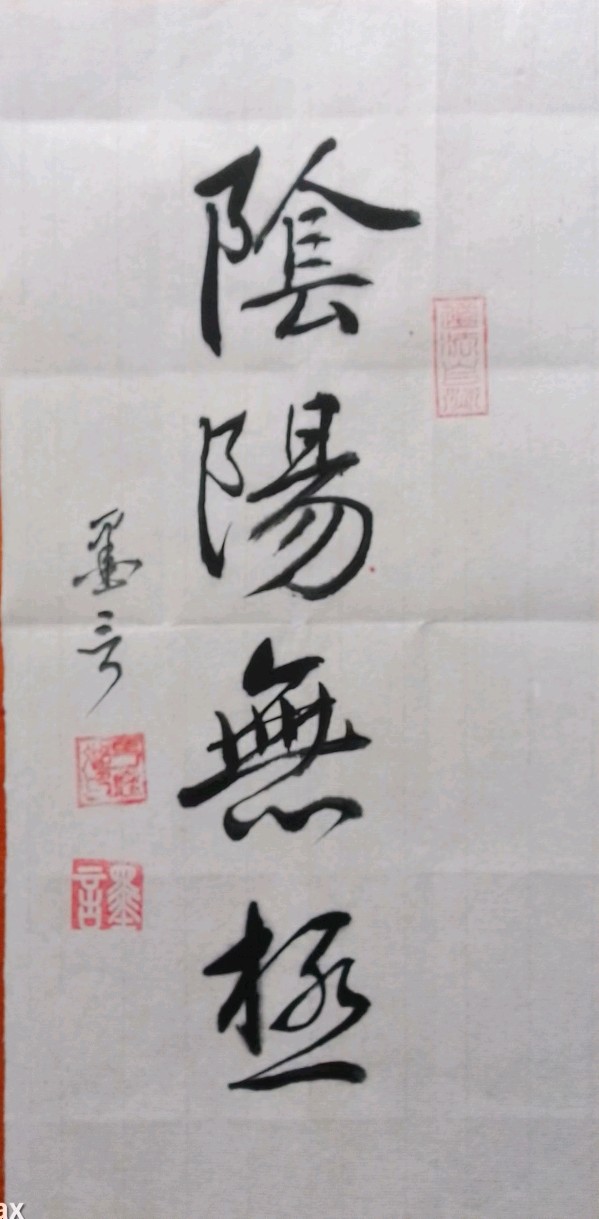 陰陽無極
墨言
墨言
ax